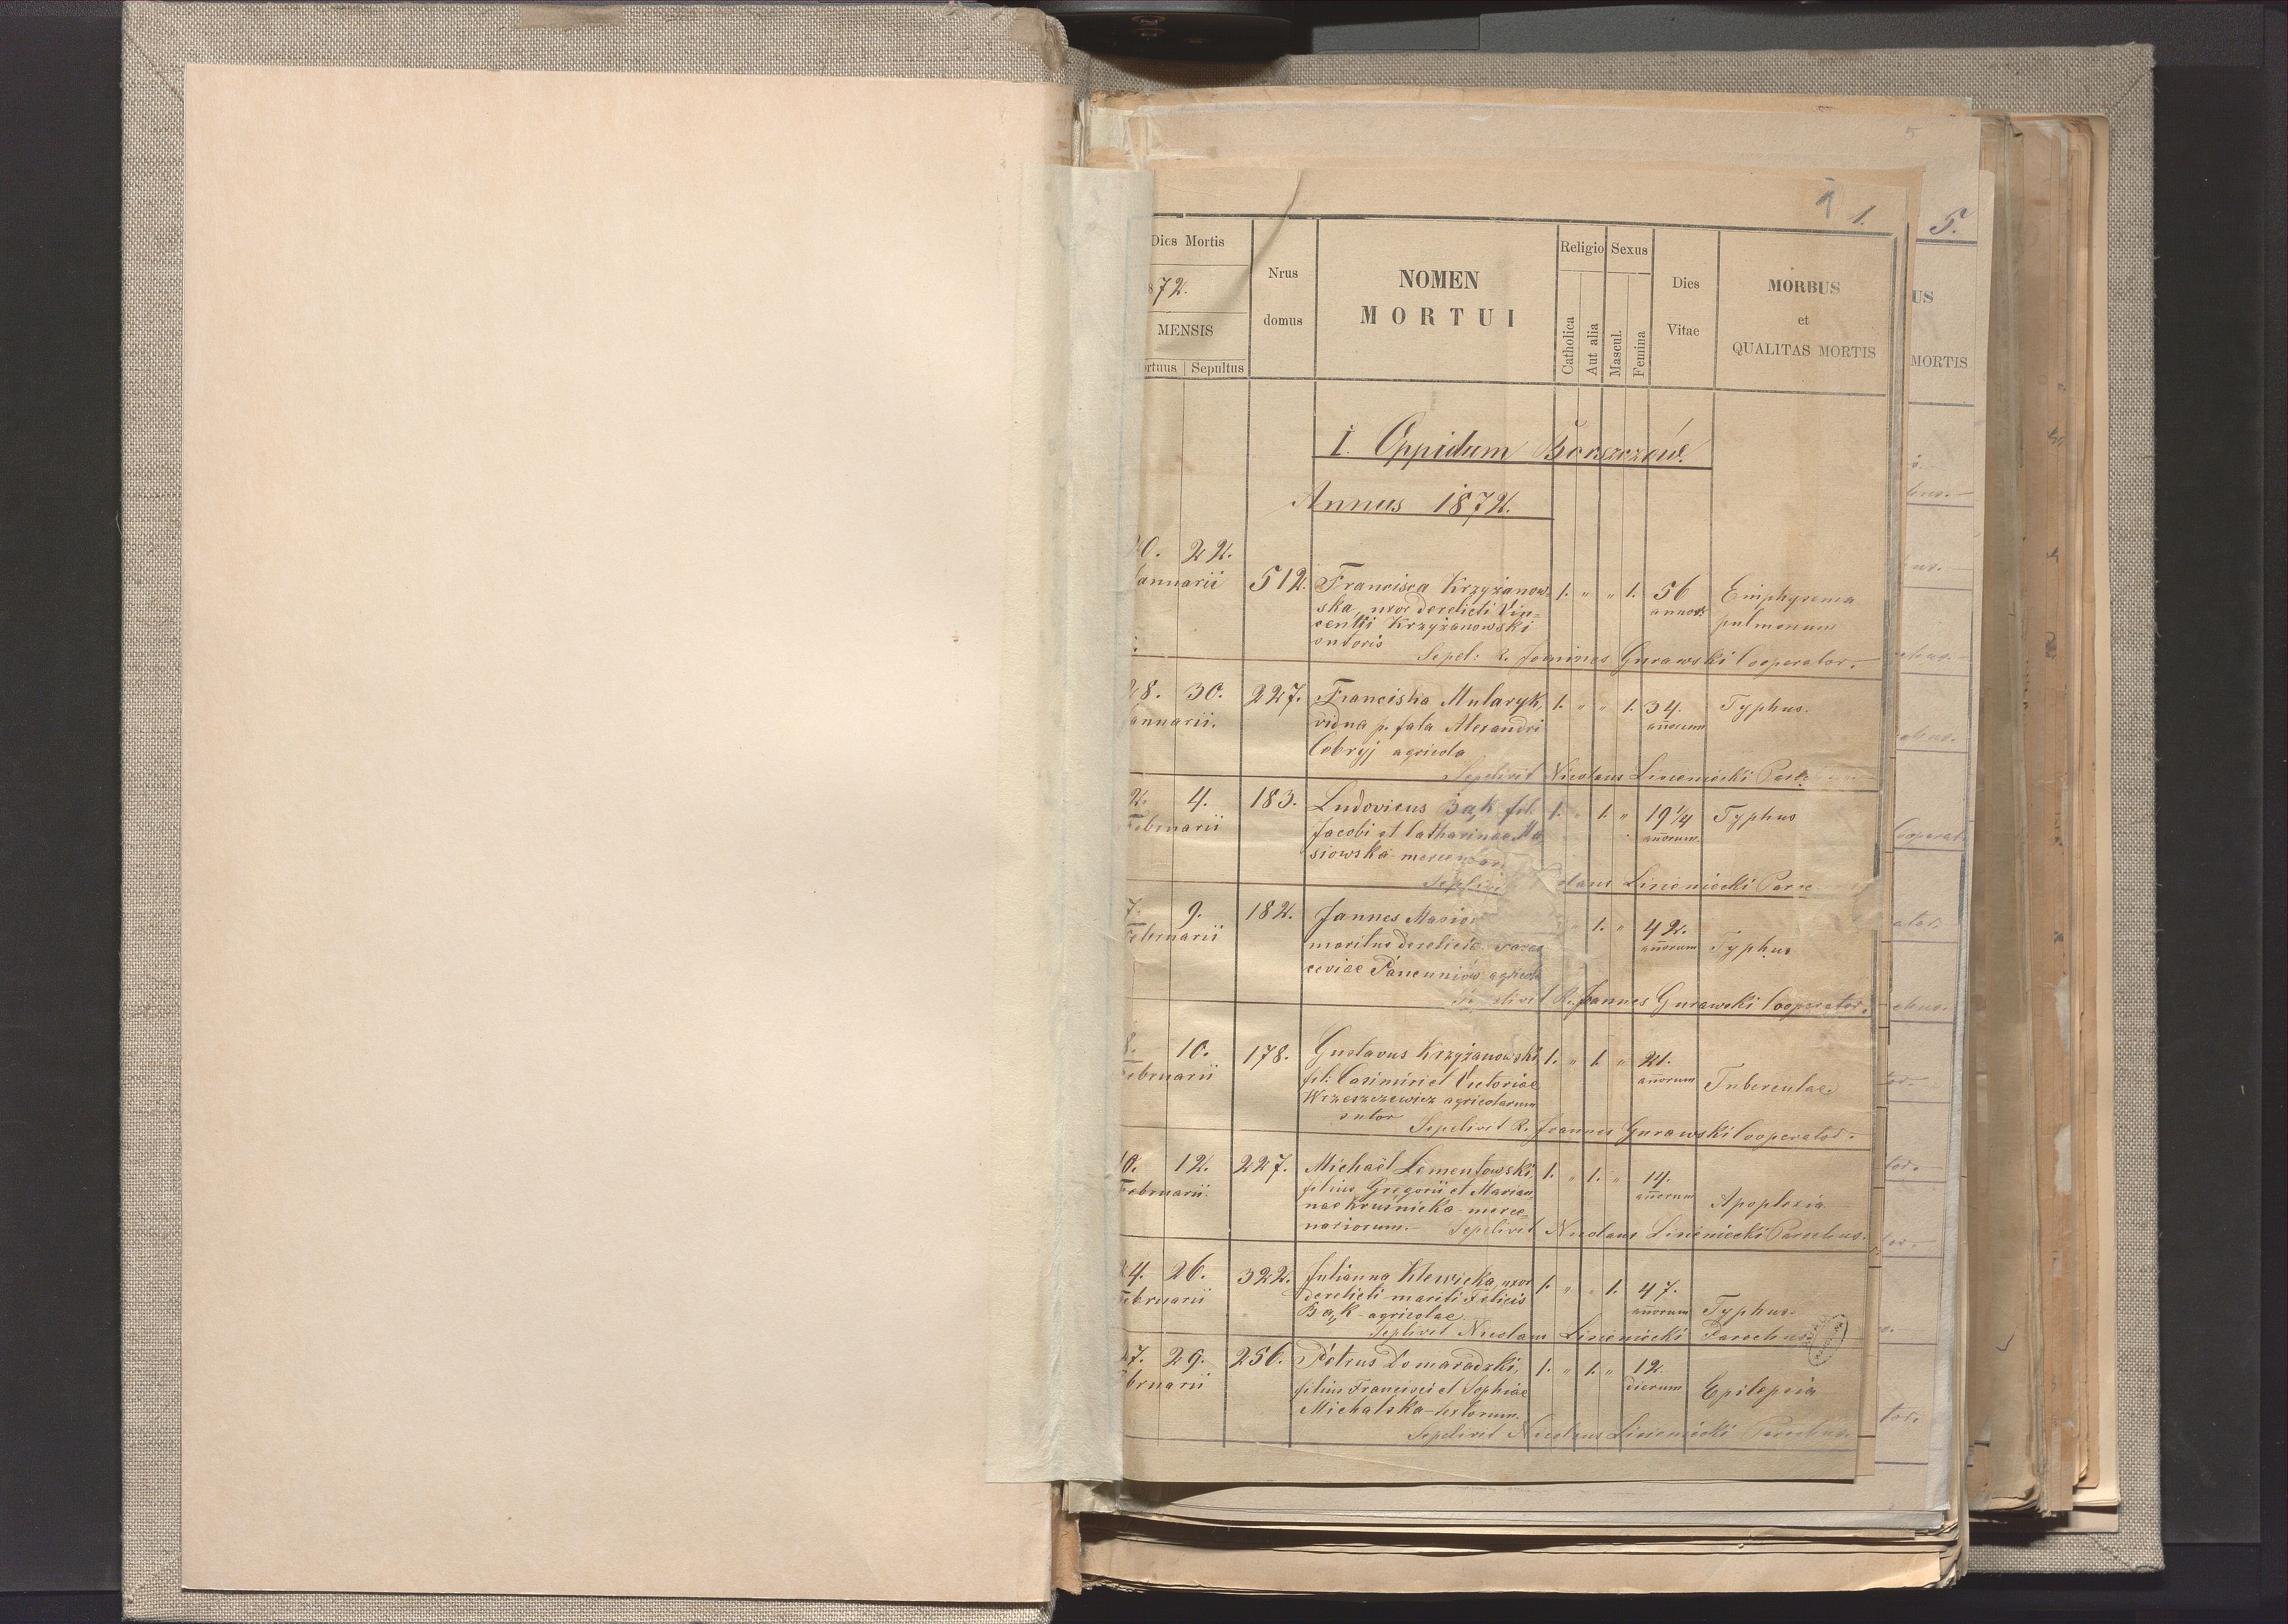 1.
Dies Mortis
872.
MENSIS
ortuus Sepultus
Nrus
domus
NOMEN
MORTUI
Religio
Catholica
Aut alia
Sexus
Mascul.
Femina
Dies
Vitae
MORBUS
et
QUALITAS MORTIS
I. Oppidum Borszczów.
Annus 1872.
20. 22.
Januarii 512. Francisca Krzyżanow- 1. " " 1. 56 Emphysema
ska, uxor derelicti Vin= annor: pulmonum
centii Krzyżanowski
sutoris
Sepel: R. Joannes Gurawski Cooperator.
28. 30. 227. Franciska Mularyk, 1. " " 1. 34. Typhus.
anuarii. vidua p. fata Alexandri annorum
Cobryj agricola
Sepelivit Nicolaus Lisieniecki Par
2. 4. 183. Ludovicus Bąk fil. 1. " 1. " 19 1/4 Typhus
Februarii Jacobi et Catharinae Ma annorum.
siowska mercenar
Sepelivi olaus Lisieniecki Par
7. 9. 182. Joannes Masio " 1. " 42.
Februarii maritus derelictae Paras annorum Typhus
ceviae Páncuniów agricola
Sepelivit R. Joannes Gurawski Cooperator.
8. 10. 178. Gustavus Krzyżanowski 1. " 1. " 21.
ebruarii fil: Casimiri et Victoriae annorum Tuberculae.
Wrzeszczewicz agricolarum
sutor Sepelivit R. Joannes Gurawski Cooperator.
10. 12. 227. Michaël Lementowski, 1. " 1. " 14.
Februarii. filius Gregorii et Marian= annorum Apoplexia
nae Kruśnicka merce=
nariorum. Sepelivit Nicolaus Lisieniecki Parochus.
24. 26. 322. Julianna Klewicka, uxor 1. " " 1. 47.
ebruarii derelicti mariti Felicis annorum Typhus.
Bąk agricolae
Seplivit Nicolaus Lisieniecki Parochus
27. 29. 256. Petrus Domaradzki, 1. " 1. " 12.
bruarii filius Francisci et Sophiae dierum Epilepsia
Michalska textorum.
Sepelivit Nicolaus Lisieniecki Parochus.
5
5.
US
MORTIS